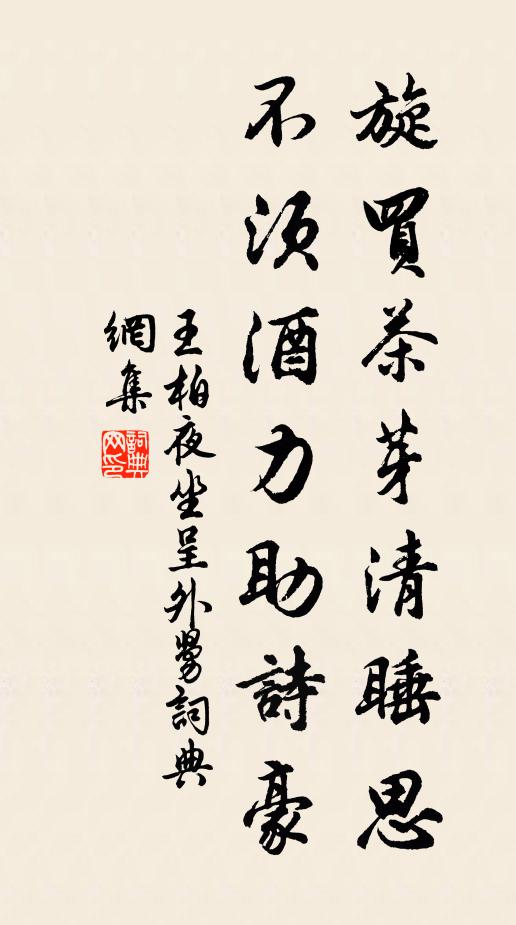 旋買茶芽清睡思
不須酒力助詩豪
王柏夜坐呈外舅詞典
網集
詞典
網印